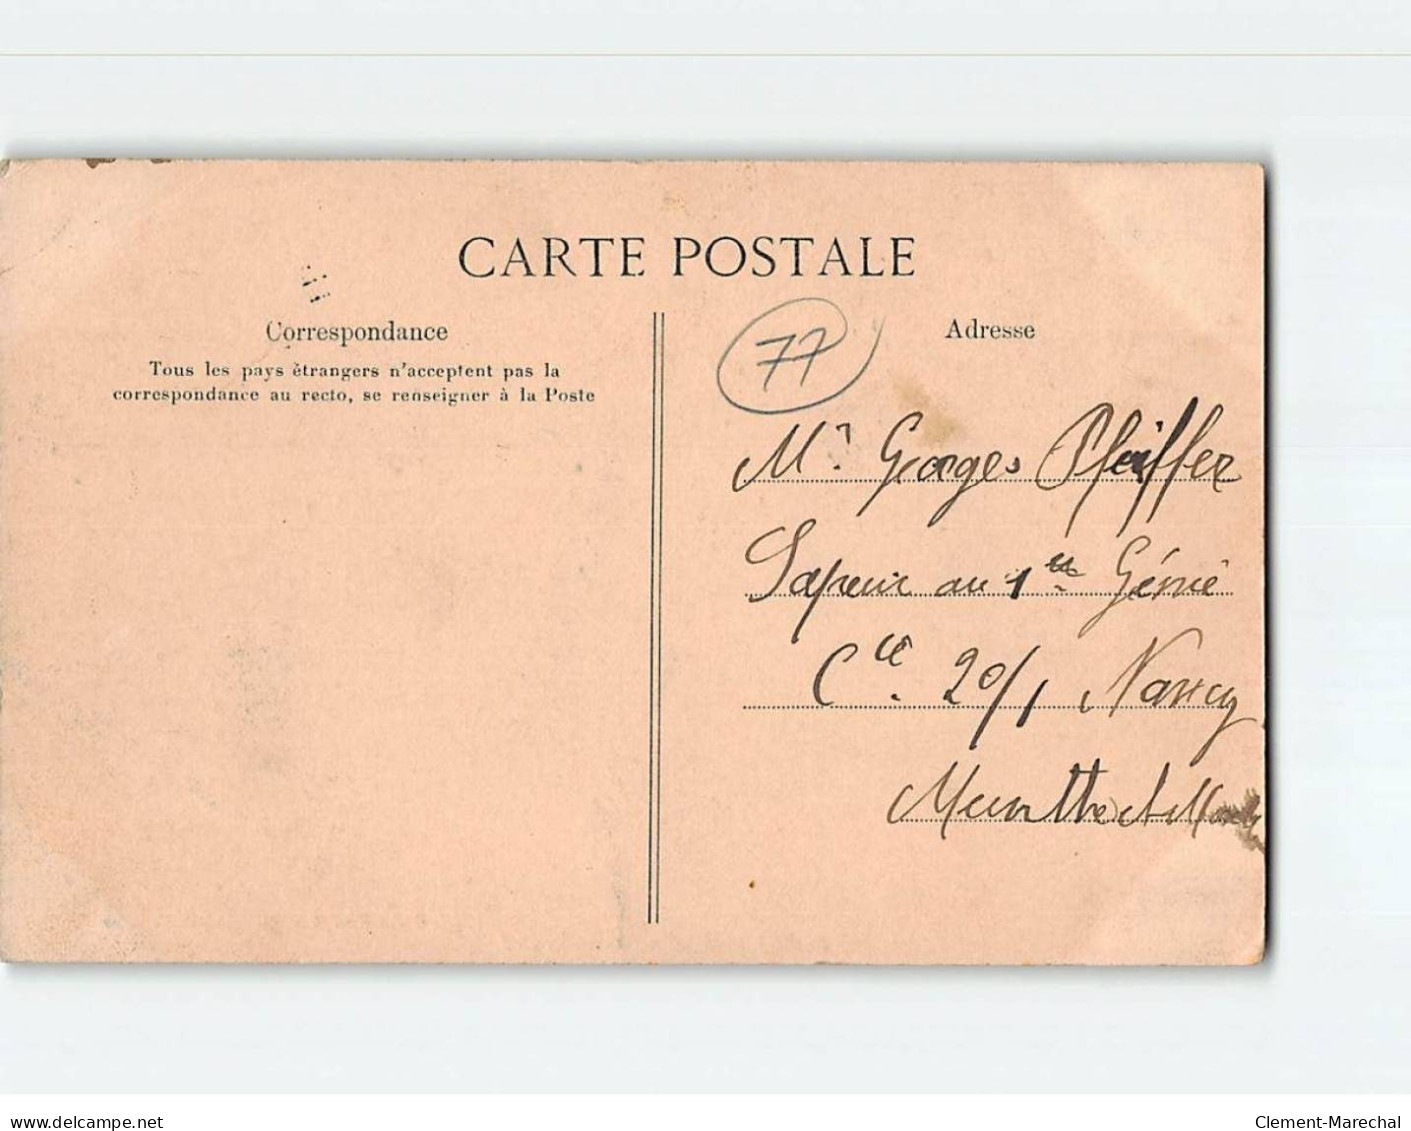 CARTE POSTALE
Correspondance
Tous les pays étrangers n'acceptent pas la
correspondance au recto, se renseigner à la Poste
77
Adresse
Mr. Georges Pfeiffer
Sapeur au 1er Génie
Cie. 20/1 Nancy
Meurthe et Moselle
www.delcampe.net
Clement-Marechal